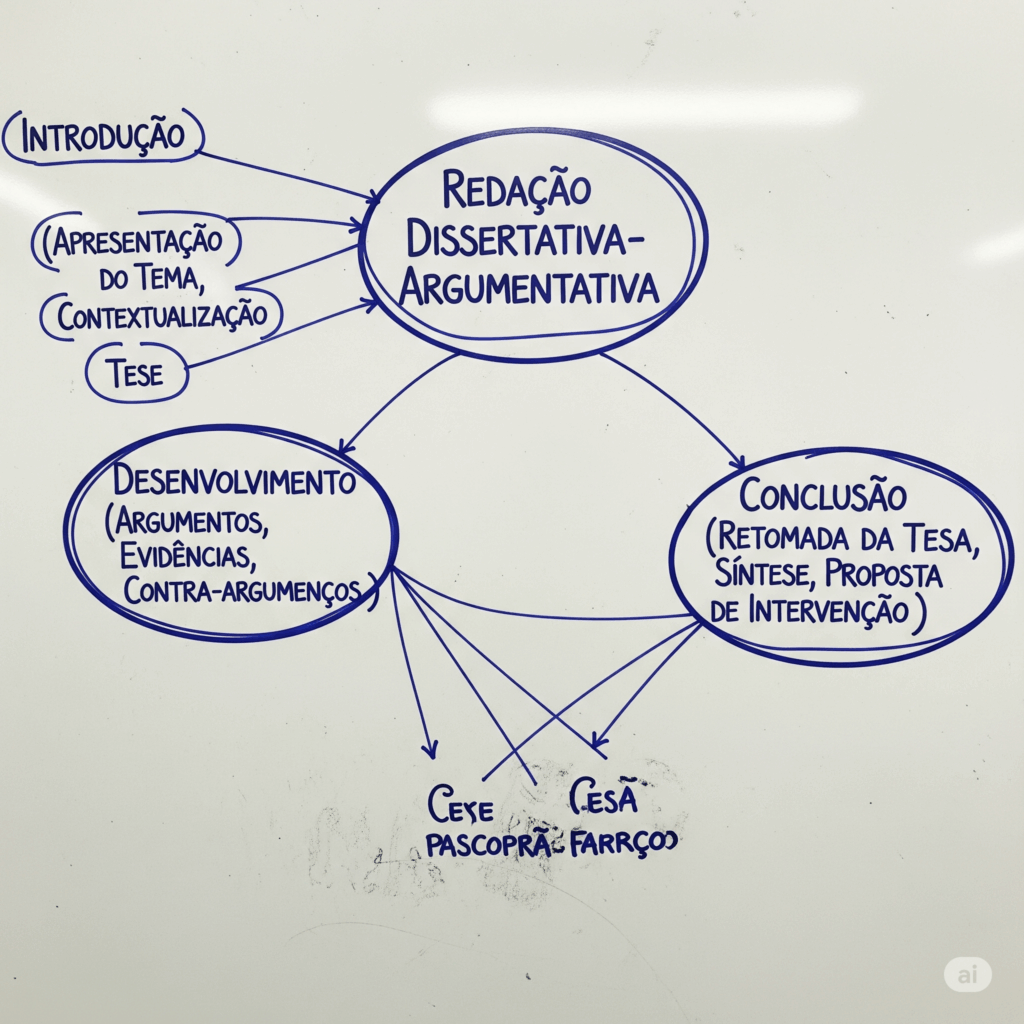 (INTRODUÇÃO)
REDAÇÃO
DISSERTATIVA-
ARGUMENTATIVA
(APRESENTAÇÃO)
DO TEMA,
(CONTEXTUALIZAÇÃO)
TESE
DESENVOLVIMENTO
(ARGUMENTOS,
EVIDÊNCIAS,
CONTRA-ARGUMENÇOS)
CONCLUSÃO
(RETOMADA DA TESA,
SÍNTESE, PROPOSTA
DE INTERVENÇÃO)
CESÃ
PASCOPRÃ- FARRÇOO
ai